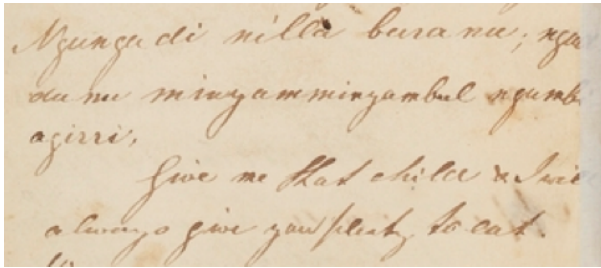 Ngungadi nilla buranu; nga
dunu minyamminyambul ngumb
agirri.
Give me that child & I wil
always give you plenty to eat.